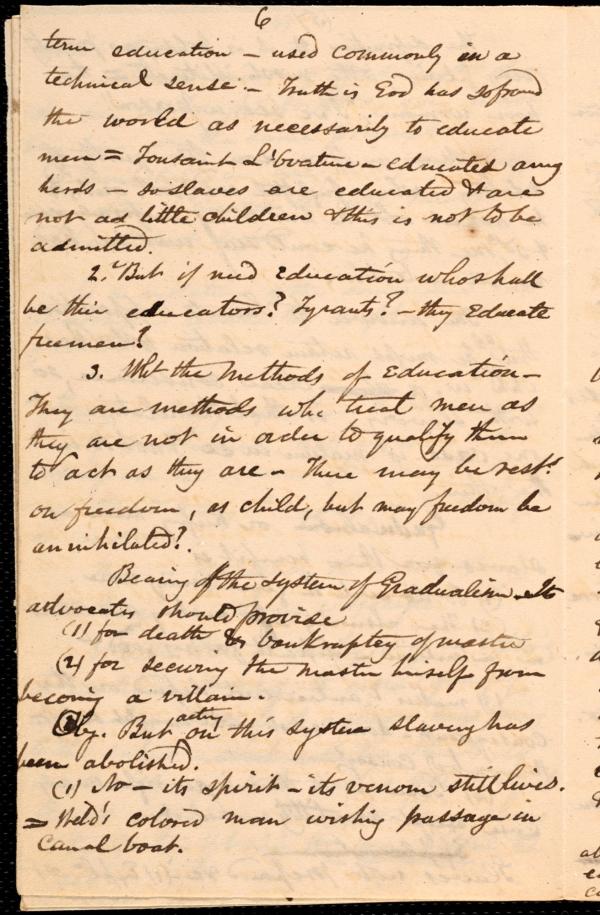 6
term education – used commonly in a
technical sense. – Truth is God has so framd
the world as necessarily to educate
men = Tousaint L'Ovature – educated amg
herds – so slaves are educated & are
not as little children & this is not to be
admitted.
2. But if need education who shall
be their educators? Tyrants? – they Educate
freemen?
3. Wht the Methods of Education –
They are methods whc treat men as
they are not in order to qualify them
to act as they are – There may be restt
on freedom, as child, but may freedom be
annihilated?.
Bearing of the system of Gradualism – Its
advocates should provide
(1) for death & bankruptcy of master
(2) for securing the master himself from
becoming a villain.
Obj. But acting on this system slavery has
been abolished.
(1) No – its spirit – its venom still lives.
= Weld's colored man wishing passage in
Canal boat.